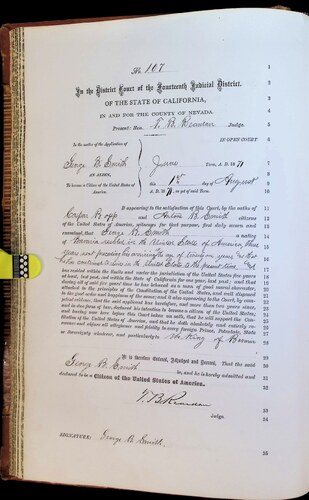 No. 107
In the District Court of the Fourteenth Judicial District,
OF THE STATE OF CALIFORNIA,
IN AND FOR THE COUNTY OF NEVADA.
Present: Hon. T. B. Reardon Judge.
In the matter of the Application of
IN OPEN COURT
George B. Smith
AN ALIEN,
To become a Citizen of the United States of America.
June Term, A.D. 1871
this 1st day of August
A. D. 1871, as yet of said Term.
It appearing to the satisfaction of this Court, by the oaths of
and Smith citizens
of the United States of America, witnesses for that purpose, first duly sworn and
examined, that George B. Smith a native
of Bavaria resided in the United States of America three
years next preceding his arriving to age of twenty one years & that
he has continued to reside in the United States to the present time and has
resided within the limits and under the jurisdiction of the United States five years
at least, last past, and within the State of California for one year, last past; and that
during all of said five years' time he has behaved as a man of good moral character,
attached to the principles of the Constitution of the United States, and well disposed
to the good order and happiness of the same; and it also appearing to the Court, by
competent evidence, that the said applicant has heretofore, and more than two years since,
and in due form of law, declared his intention to become a citizen of the United States,
and having now here before this Court taken an oath, that he will support the
Constitution of the United States of America, and that he doth absolutely and entirely
renounce and abjure all allegiance and fidelity to every foreign Prince, Potentate, State
or Sovereignty whatever, and particularly to the King of Bavaria
It is therefore Ordered, Adjudged and Decreed, That the said
George B. Smith be, and he is hereby admitted and
declared to be a Citizen of the United States of America.
T. B. Reardon
Judge
SIGNATURE: George B. Smith.